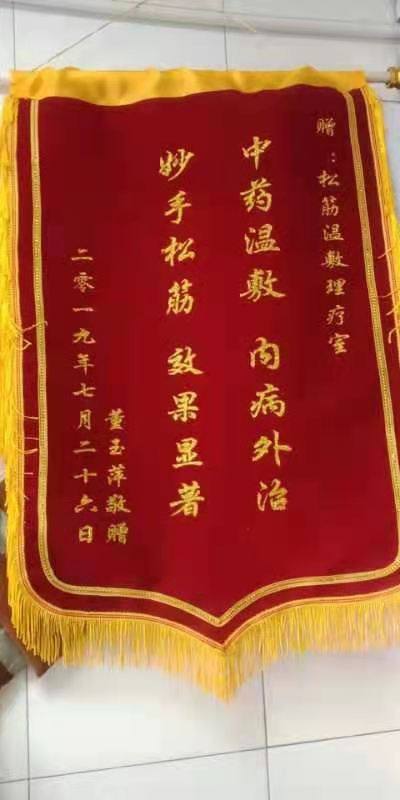 赠：松筋温敷理疗室
中药温敷 内病外治
妙手松筋 效果显著
董玉萍敬赠
二零一九年七月二十六日